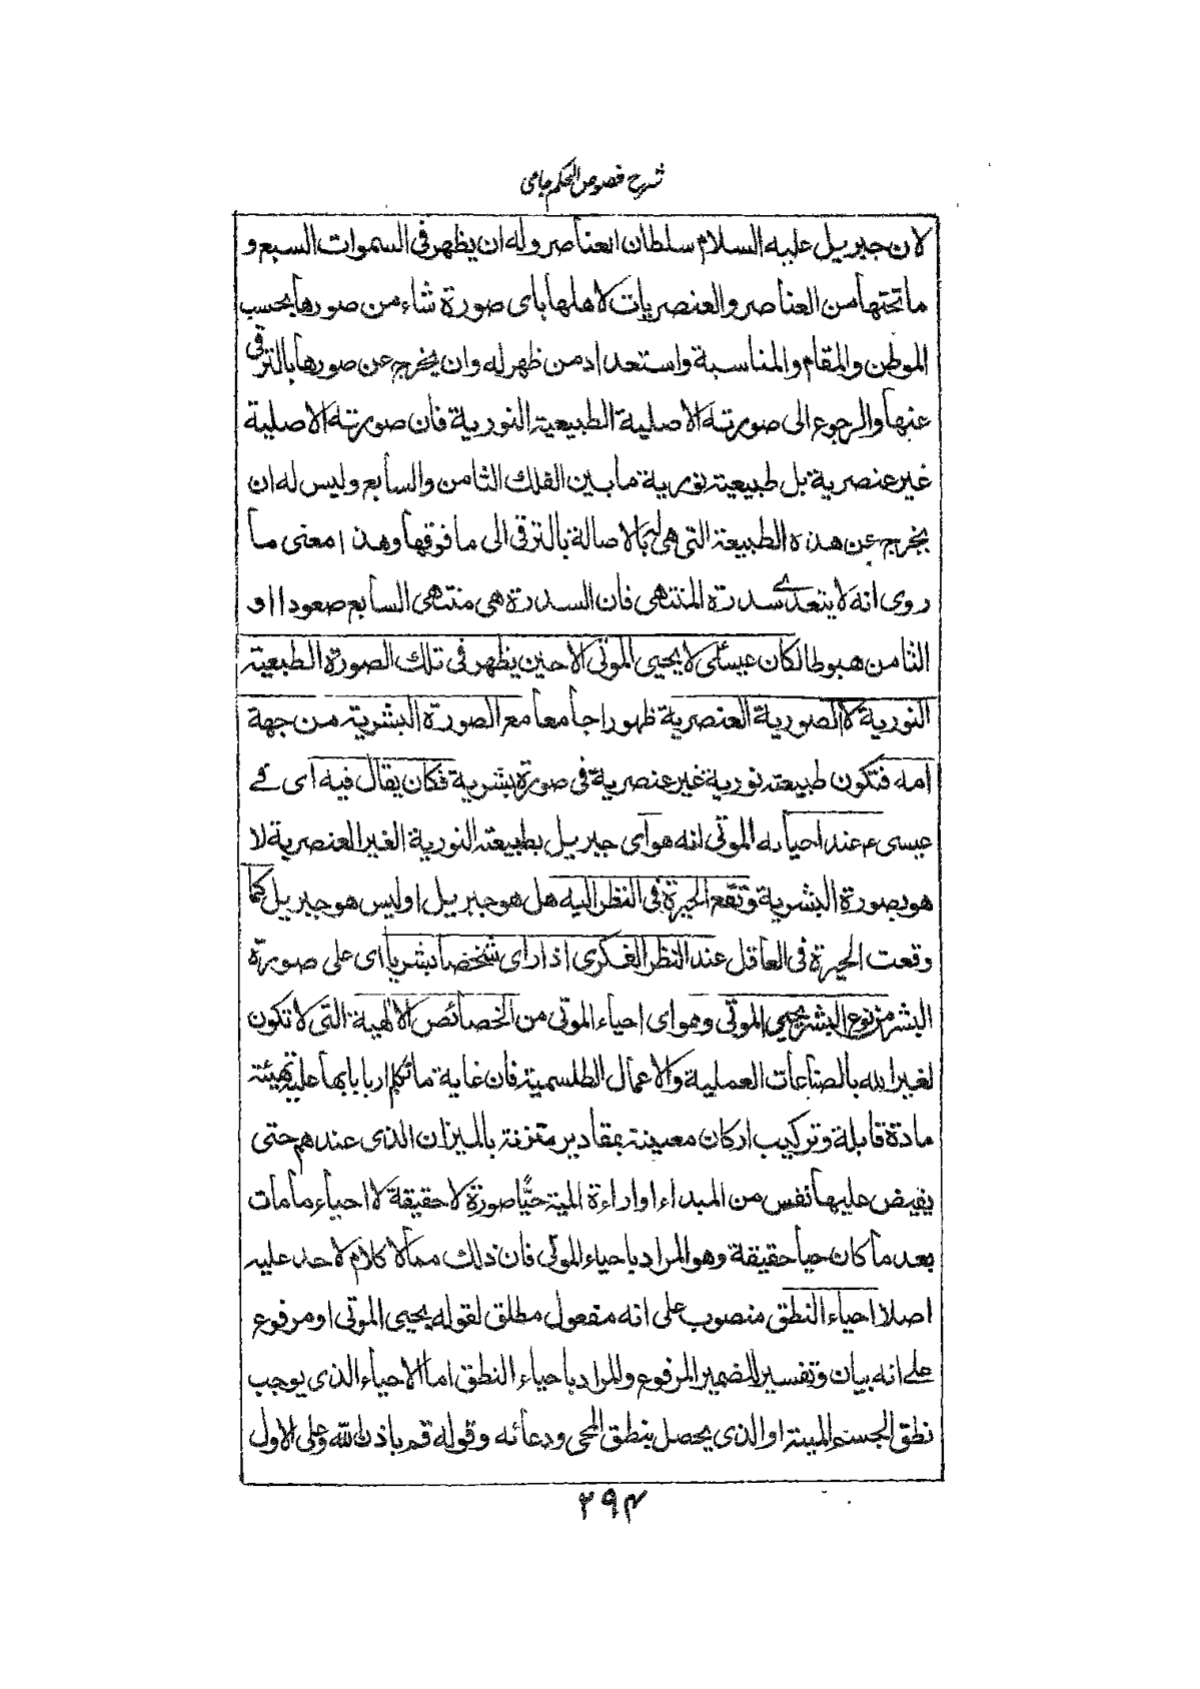 شرح فصوص الحکم جامی
لان جبریل علیه السلام سلطان العناصر وله ان یظهر فی السموات السبع و
ما تحتها من العناصر والعنصریات لاهلها بای صورة شاء من صورها بحسب
الموطن والمقام والمناسبة واستعداد من ظهر له وان یخرج عن صورها بالترقی
عنها والرجوع الی صورته الاصلیة الطبیعیة النوریة فان صورته الاصلیة
غیر عنصریة بل طبیعیة نوریة ما بین الفلك الثامن والسابع ولیس له ان
یخرج عن هذه الطبیعة التی هی له بالاصالة بالترقی الی ما فوقها وهذا معنی ما
روی انه لا یتعدے سدرة المنتهی فان السدرة هی منتهی السابع صعودا او
الثامن هبوطا لکان عیسیٰ لا یحیی الموتی الا حین یظهر فی تلك الصورة الطبعیة
النوریة لا الصوریة العنصریة ظهورا جامعا مع الصورة البشریة من جهة
امه فتکون طبیعته نوریة غیر عنصریة فی صورة بشریة فکان یقال فیه ای فے
عیسی ء م عند احیائه الموتی انه هو ای جبریل بطبیعته النوریة الغیر العنصریة لا
هو بصورة البشریة وتقع الحیرة فی النظر الیه هل هو جبریل او لیس هو جبریل کما
وقعت الحیرة فی العاقل عند النظر الفکری اذا رای شخصا بشریا ای علی صورة
البشر من نوع البشر یحیی الموتی وهو ای احیاء الموتی من الخصائص الالهیة التی لا تکون
لغیر الله بالصناعات العملیة والاعمال الطلسمیة فان غایة ما تکلم اربابها علیه تهیئة
مادة قابلة وترکیب ارکان معینة بمقادیر متزنة بالمیزان الذی عندهم حتی
یفیض علیها نفس من المبداء او اراءة المیت حیًّا صورة لا حقیقة لا احیاء ما مات
بعد ما کان حیا حقیقة وهو المراد باحیاء الموتی فان ذلك مما لا کلام لاحد علیه
اصلا احیاء النطق منصوب علی انه مفعول مطلق لقوله یحیی الموتی او مرفوع
علے انه بیان وتفسیر للضمیر المرفوع والمراد باحیاء النطق اما الاحیاء الذی یوجب
نطق الجسم المیتة او الذی یحصل بنطق المحی ودعائه وقوله قم باذن الله وعلی الاول
۲۹۴